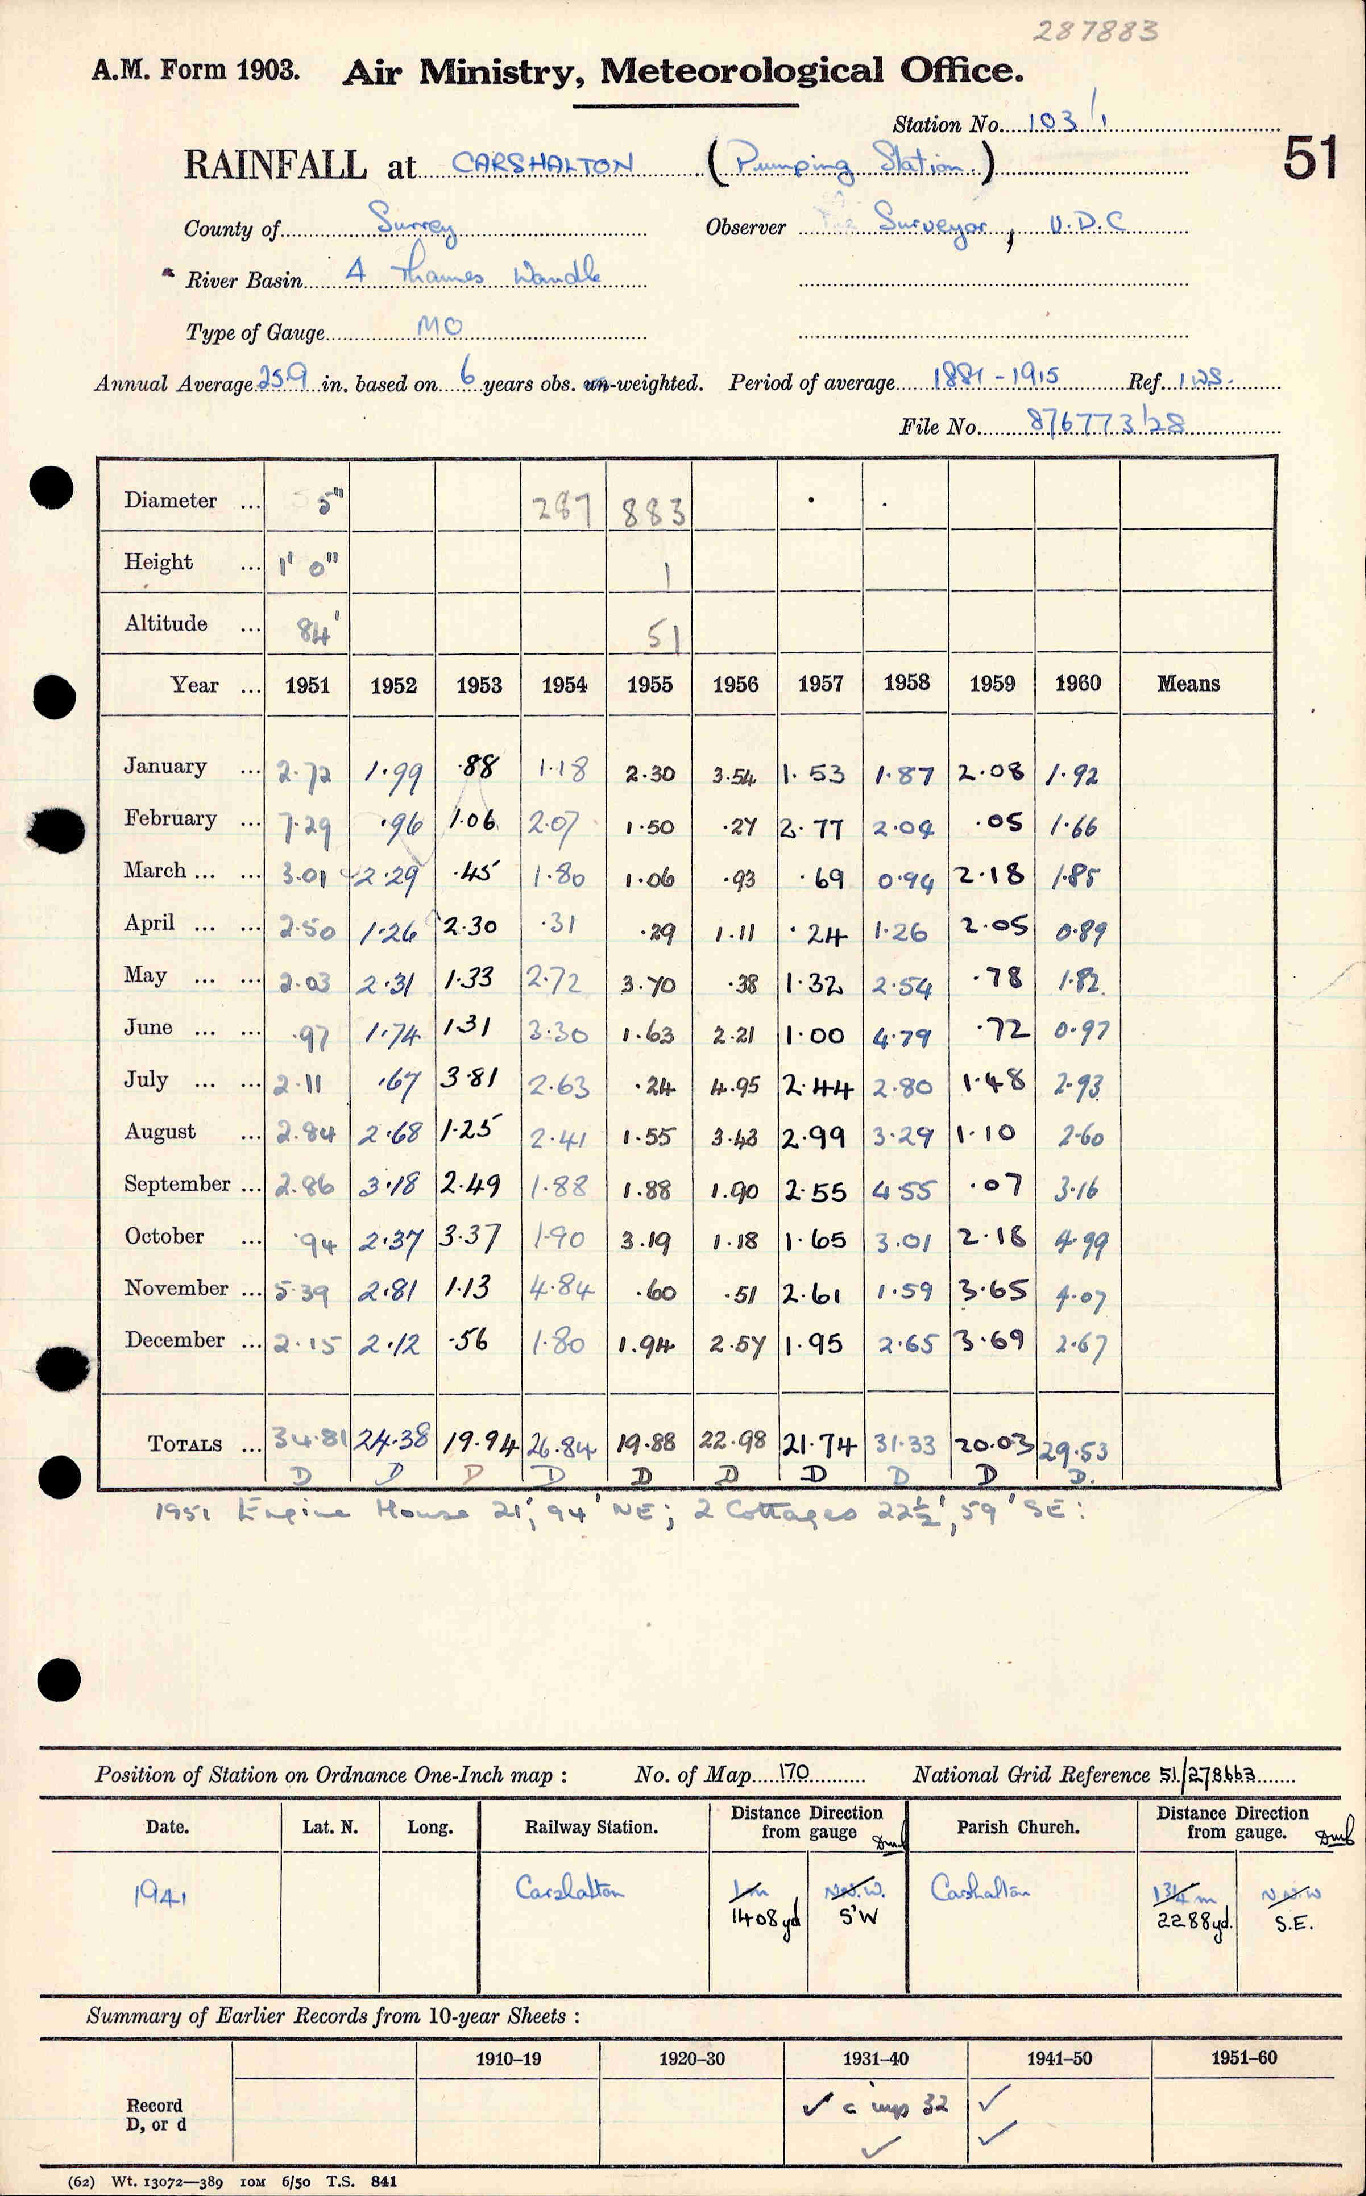 287883
A.M. Form 1903. Air Ministry, Meteorological Office.
Station No. 103/1
51
RAINFALL at CARSHALTON (Pumping Station.)
County of Surrey Observer Surveyor, U.D.C
River Basin 4 Thames Wandle
Type of Gauge MO
Annual Average 25.9 in. based on 6 years obs. un-weighted. Period of average 1881-1915 Ref.
File No. 876773/28
Diameter ... 5" 287 883
Height ... 1' 0" 1
Altitude ... 84' 51
Year ... 1951 1952 1953 1954 1955 1956 1957 1958 1959 1960 Means
January ... 2.72 1.99 .88 1.18 2.30 3.54 1.53 1.87 2.08 1.92
February ... 7.29 .96 1.06 2.07 1.50 .27 2.77 2.04 .05 1.66
March ... ... 3.01 2.29 .45 1.80 1.06 .93 .69 0.94 2.18 1.85
April ... ... 2.50 1.26 2.30 .31 .29 1.11 .24 1.26 2.05 0.89
May ... ... 2.03 2.31 1.33 2.72 3.70 .38 1.32 2.54 .78 1.82
June ... ... .97 1.74 1.31 3.30 1.63 2.21 1.00 4.79 .72 0.97
July ... ... 2.11 .67 3.81 2.63 .24 4.95 2.44 2.80 1.48 2.93
August ... 2.84 2.68 1.25 2.41 1.55 3.43 2.99 3.29 1.10 2.60
September ... 2.86 3.18 2.49 1.88 1.88 1.90 2.55 4.55 .07 3.16
October ... .94 2.37 3.37 1.90 3.19 1.18 1.65 3.01 2.18 4.99
November ... 5.39 2.81 1.13 4.84 .60 .51 2.61 1.59 3.65 4.07
December ... 2.15 2.12 .56 1.80 1.94 2.57 1.95 2.65 3.69 2.67
TOTALS ... 34.81 24.38 19.94 26.84 19.88 22.98 21.74 31.33 20.03 29.53
D D D D D D D D D D.
1951 Engine House 21', 94' NE; 2 Cottages 22½', 59' SE:
Position of Station on Ordnance One-Inch map : No. of Map 170 National Grid Reference 51/278663
Date. Lat. N. Long. Railway Station. Distance Direction from gauge Parish Church. Distance Direction from gauge.
1941 Carshalton 1m N.N.W. Carshalton 1¾ m N N W
1408 yd S'W 2288 yd. S.E.
Summary of Earlier Records from 10-year Sheets :
1910–19 1920–30 1931–40 1941–50 1951–60
Record ✓ c imp 32 ✓
D, or d ✓ ✓
(62) Wt. 13072—389 10M 6/50 T.S. 841